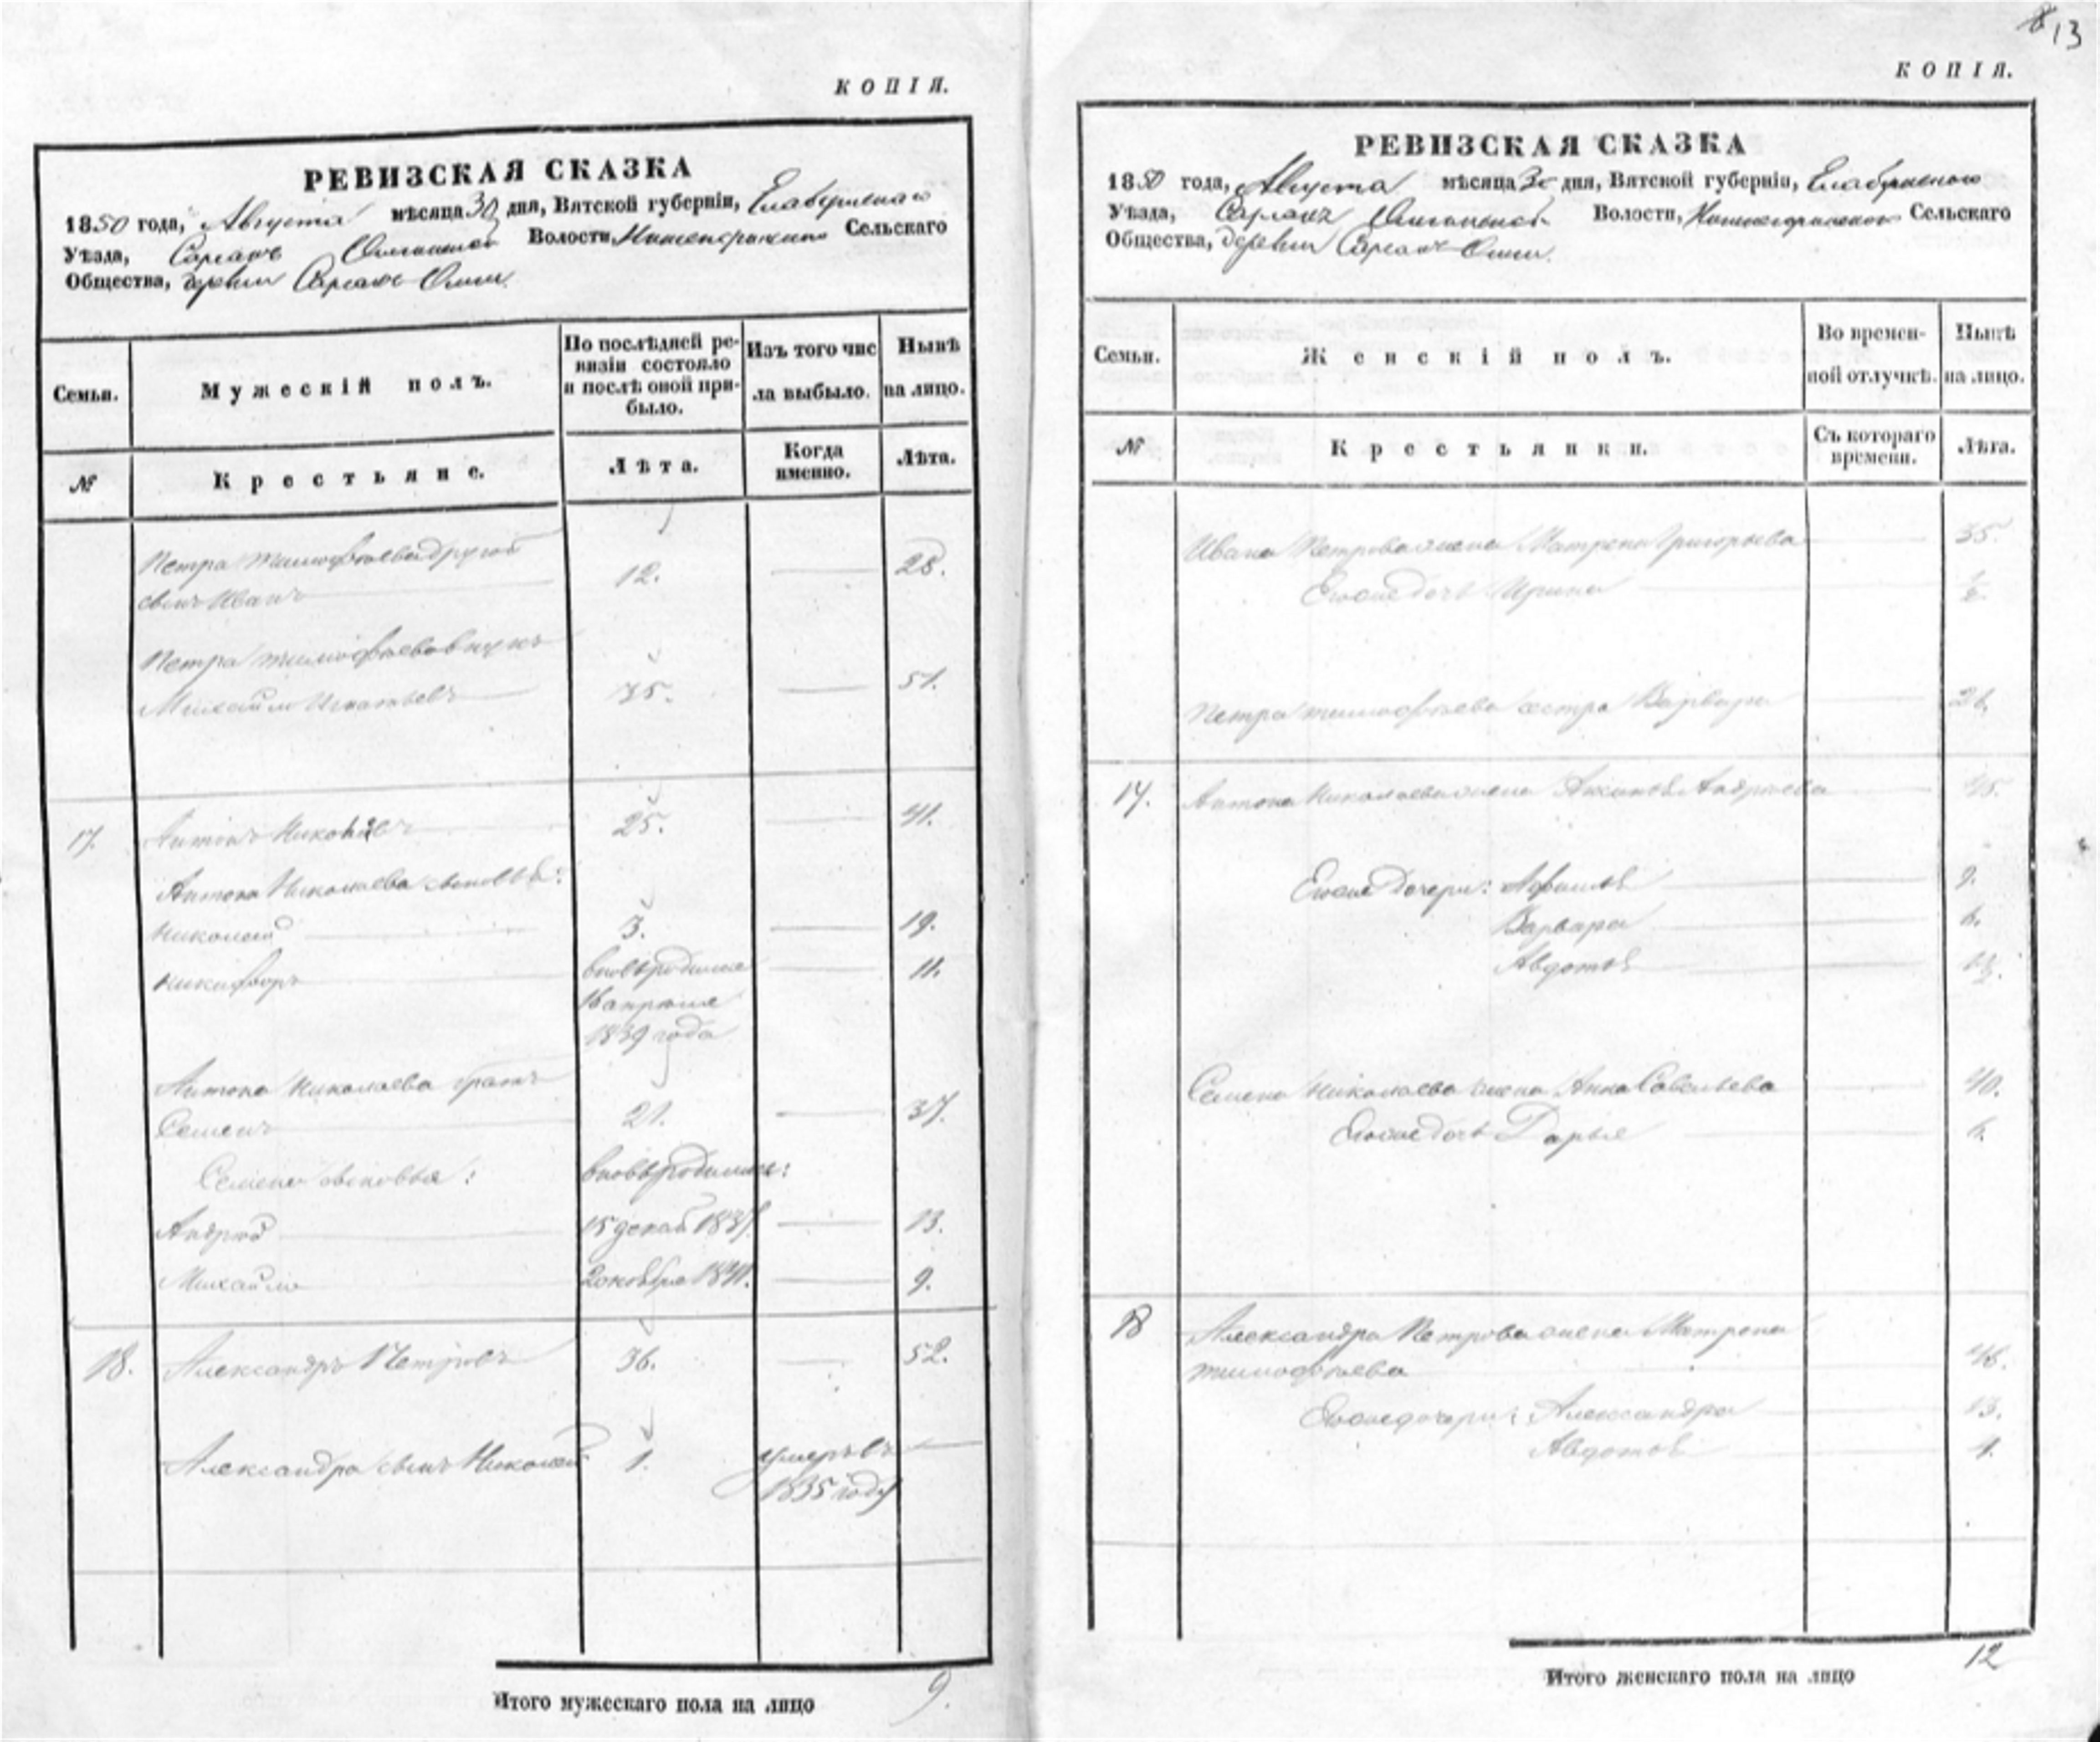 13
КОПІЯ.
РЕВИЗСКАЯ СКАЗКА
1850 года, Августа мѣсяца 30 дня, Вятской губерніи, Елабужскаго
Уѣзда, Волости, Сельскаго
Общества, деревни
Семьи.
Мужескій полъ.
По послѣдней ре-
визіи состояло
и послѣ оной при-
было.
Изъ того чис
ла выбыло.
Нынѣ
на лицо.
№
Крестьяне.
Лѣта.
Когда
именно.
Лѣта.
Петра Тимофѣева другой
сынъ Иванъ 12. 28.
Петра Тимофѣева внукъ
Михайло Игнатьевъ 35. 51.
17. Антонъ Николаевъ 25. 41.
Антона Николаева сыновья:
Николай 3. 19.
Никифоръ вновь родился 11.
16 апрѣля
1839 года
Антона Николаева братъ
Семенъ 21. 37.
Семена сыновья: вновь родились:
Андрей 15 декаб 1837. 13.
Михайло 2 октября 1841. 9.
18. Александръ Петровъ 36. 52.
Александра сынъ Николай 1. умеръ въ
1835 году
Итого мужескаго пола на лицо 9.
КОПІЯ.
РЕВИЗСКАЯ СКАЗКА
1850 года, Августа мѣсяца 30 дня, Вятской губерніи, Елабужскаго
Уѣзда, Волости, Сельскаго
Общества, деревни
Семьи.
Женскій полъ.
Во времен-
ной отлучкѣ.
Нынѣ
на лицо.
№
Крестьянки.
Съ котораго
времени.
Лѣта.
Ивана Петрова жена Матрена Григорьева 35.
Его же дочь Ирина
Петра Тимофѣева сестра Варвара
17. Антона Николаева жена Андрѣева 45.
Его же дочери: 9.
Варвара 6.
Авдотья
Семена Николаева жена Анна Савельева 40.
Его же дочь Дарья 6.
18 Александра Петрова жена Матрена
Тимофѣева 46.
Его же дочери: Александра 13.
Авдотья 1.
Итого женскаго пола на лицо 12